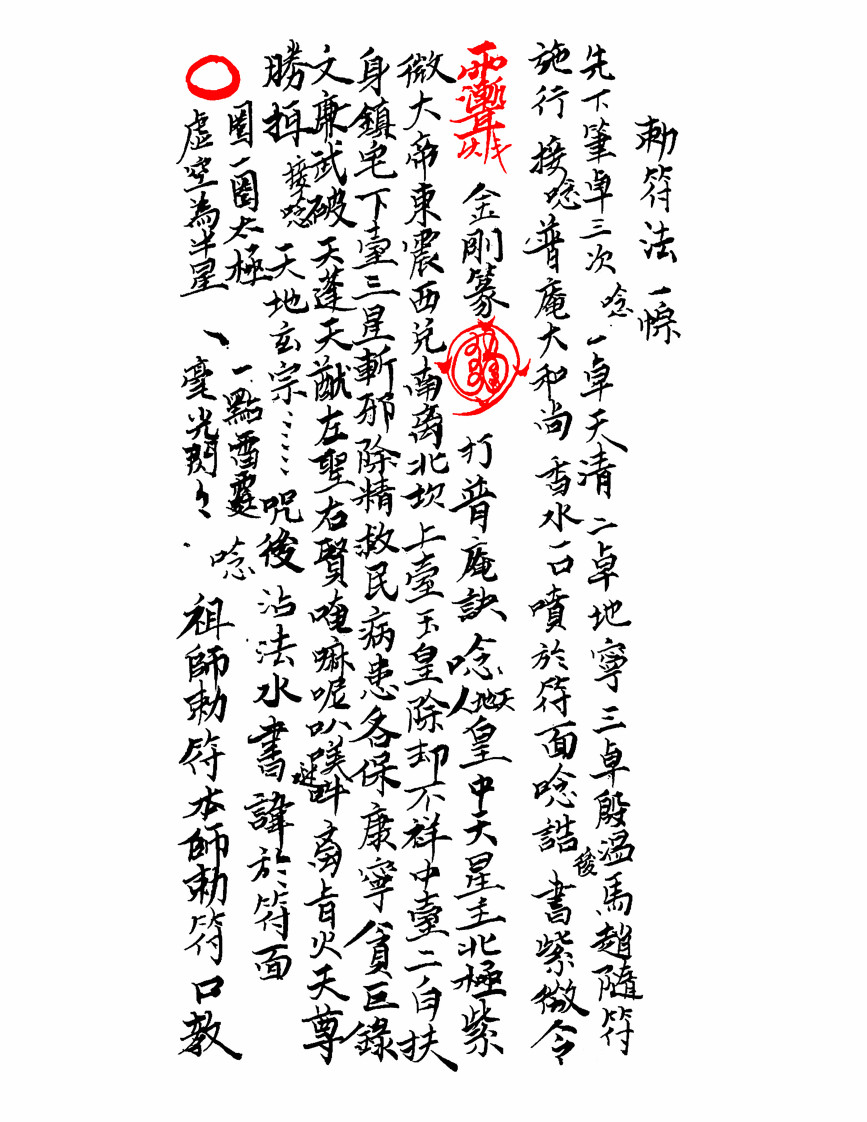 勅符法一條
先下筆卓三次 唸 一卓天清 二卓地寧 三卓殷溫馬趙隨符
施行 接唸 普庵大和尚 香水一口噴於符面唸誥後 書紫微令
金剛篆 打普庵訣 唸天地人皇中天星主北極紫
微大帝東震西兌南离北坎上臺玉皇除却不祥中臺二白扶
身鎮宅下臺三星斬邪除精救民病患各保康寧貪巨錄
文廉武破天蓬天猷左聖右賢唵嘛呢叭 吽 尊
勝 接唸 天地玄宗……呪後 沾法水書諱於符面
圈一圈太極 一點雷霆 唸
虛空為半星 毫光閃々 祖師勅符本師勅符口教